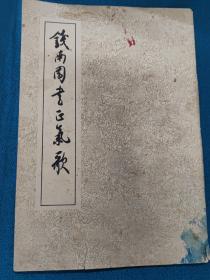 錢南園書正氣歌